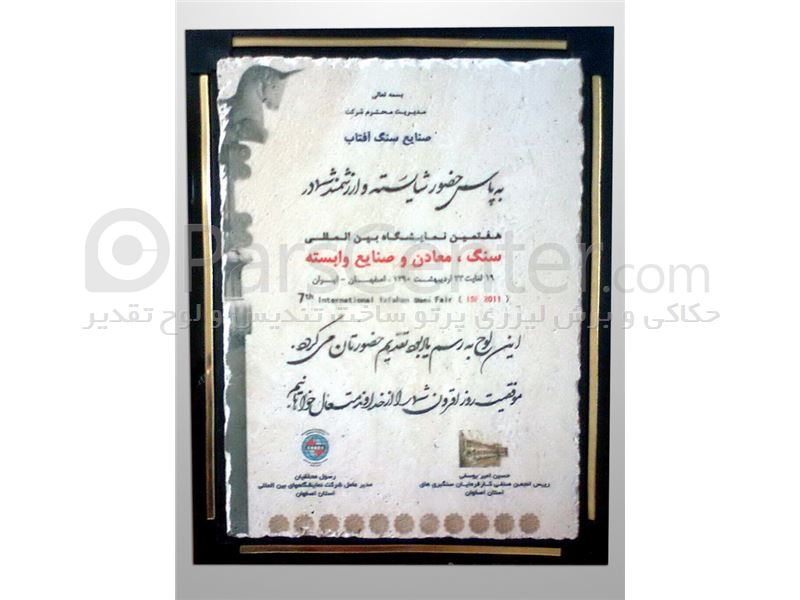 بسمه تعالی
مدیریت محترم شرکت
صنایع سنگ آفتاب
به پاس حضور شایسته و ارزشمند شما در
هفتمین نمایشگاه بین المللی
سنگ ، معادن و صنایع وابسته
۱۹ لغایت ۲۳ اردیبهشت ۱۳۹۰ ، اصفهان - ایران
7th International Isfahan Stone Fair ( ISF 2011 )
ParsCenter.com
حکاکی و برش لیزری پرتو ساخت تندیس و لوح تقدیر
این لوح به رسم یادبود تقدیم حضورتان می گردد.
موفقیت روز افزون شما را از خداوند متعال خواهانیم.
حسین امیر یوسفی
رییس انجمن صنفی کارفرمایان سنگبری های
استان اصفهان
رسول محققیان
مدیر عامل شرکت نمایشگاههای بین المللی
استان اصفهان